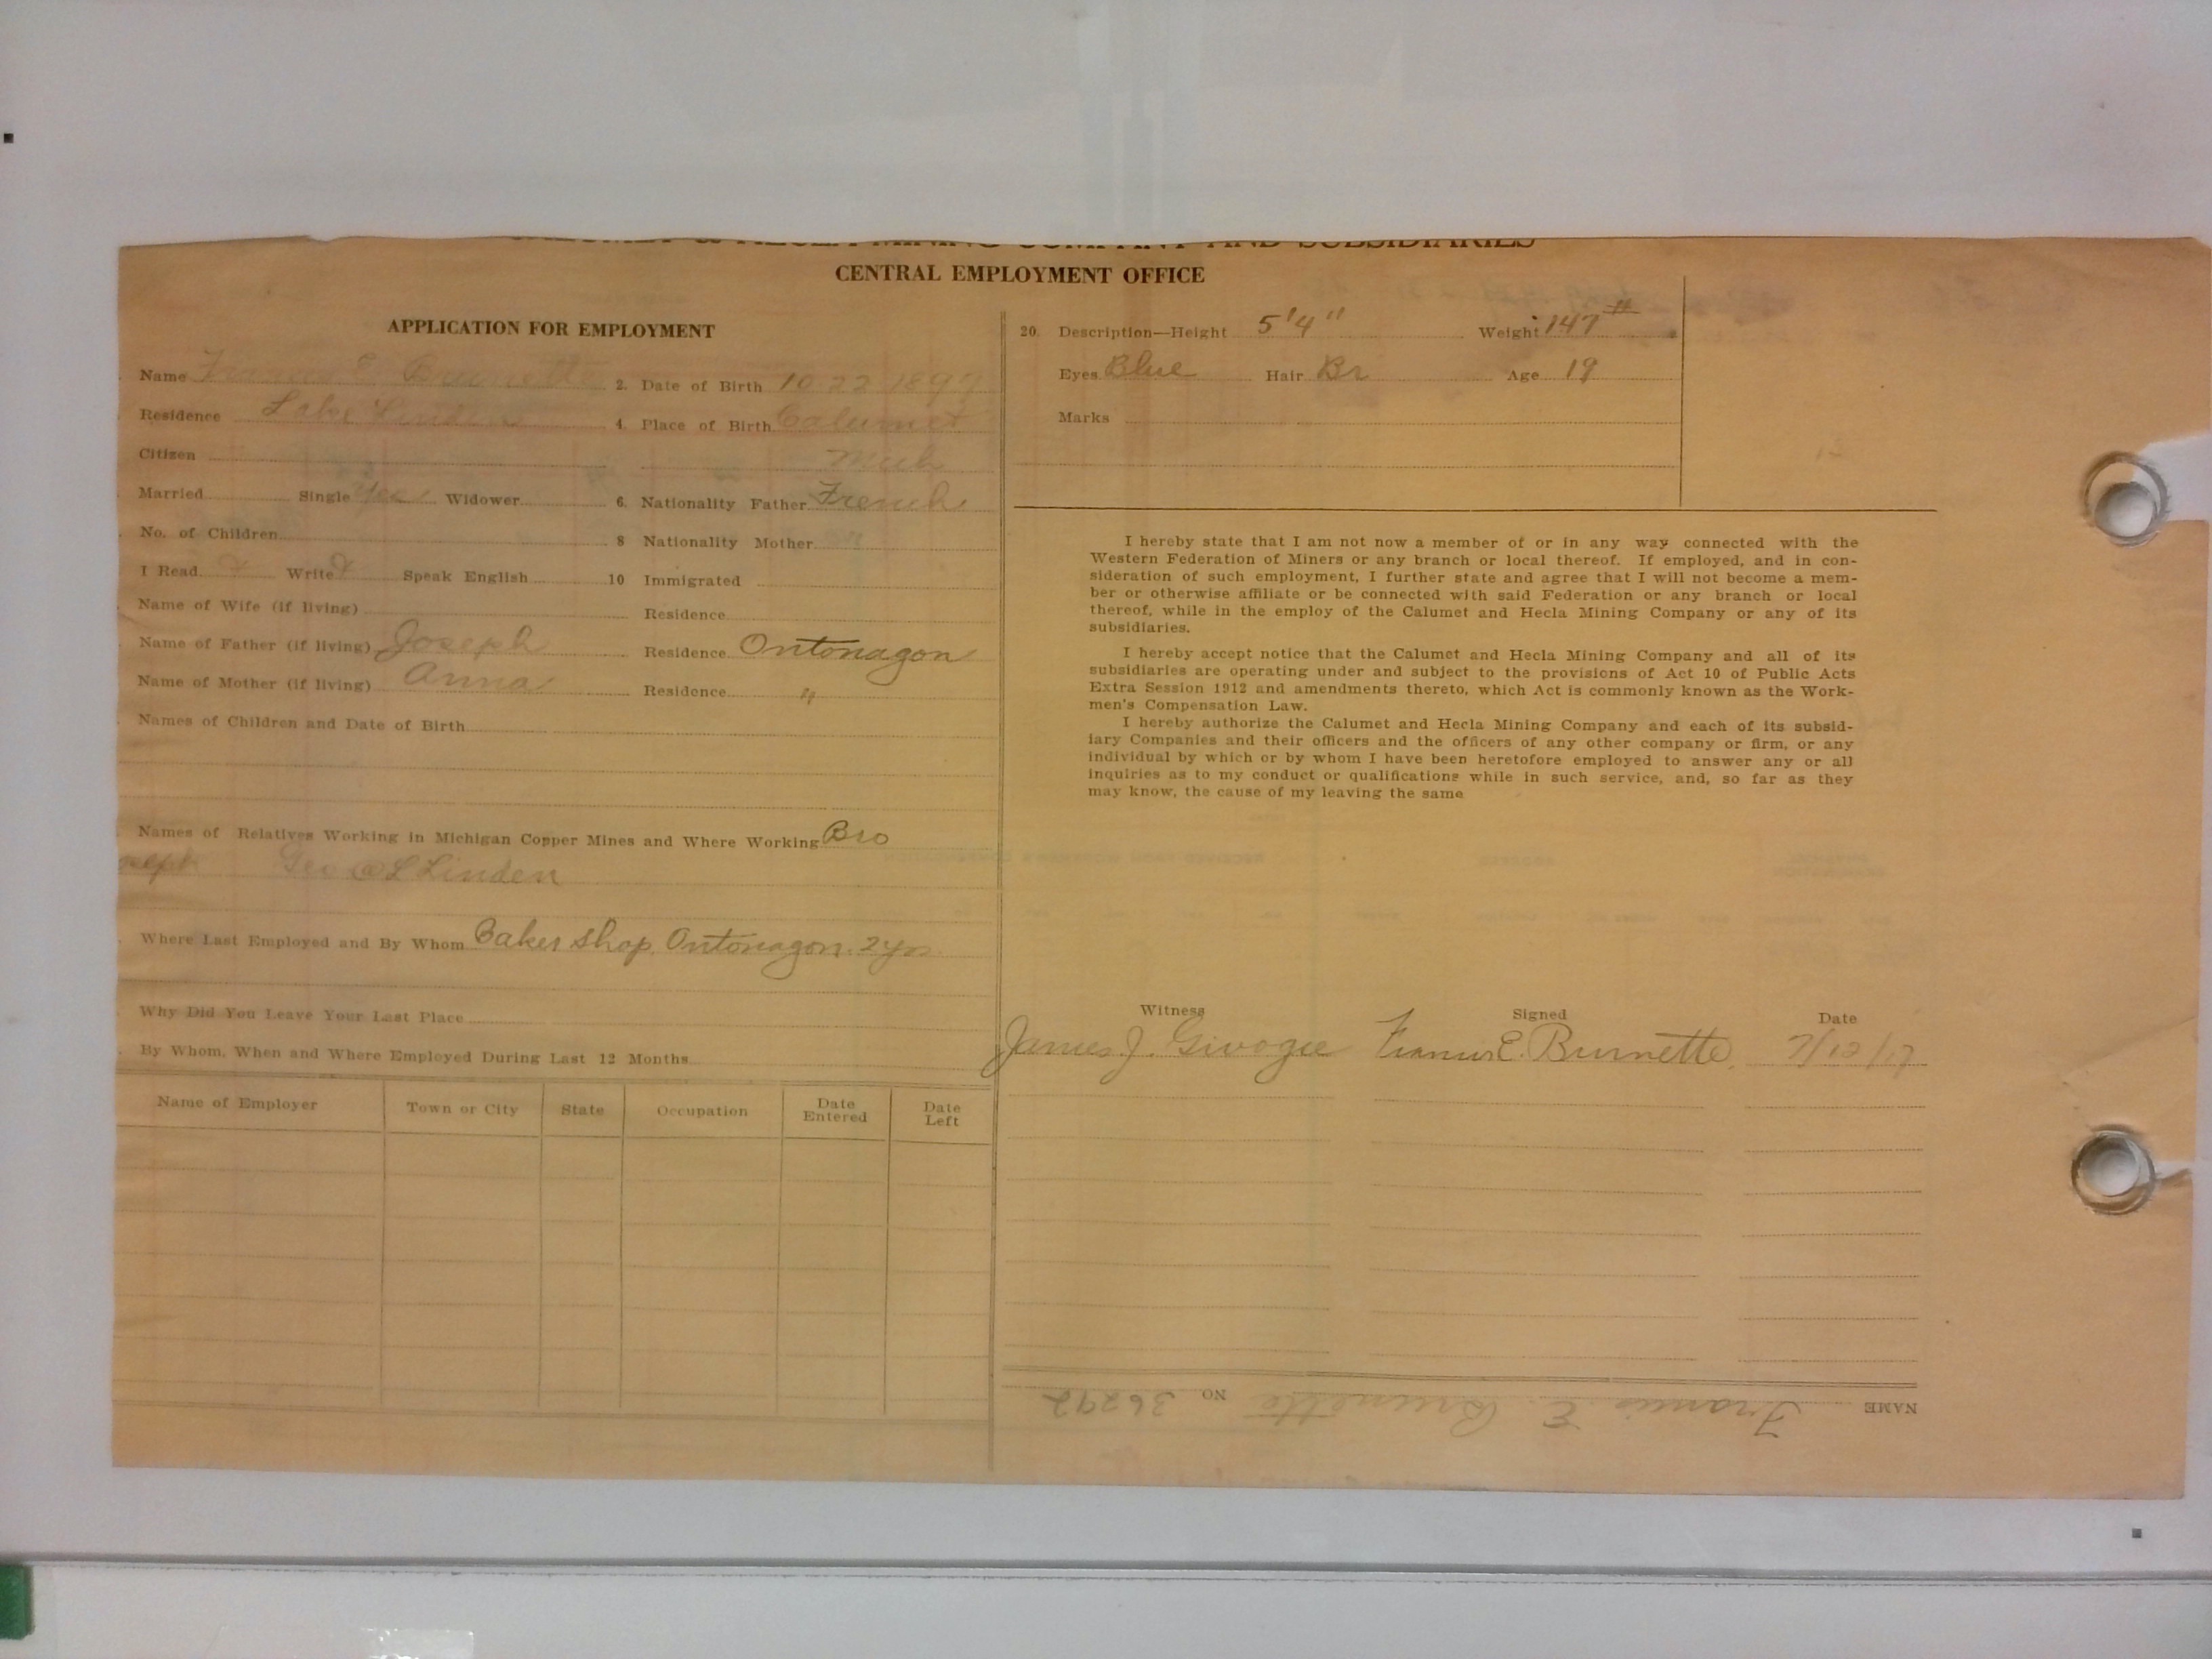 CALUMET & HECLA MINING COMPANY AND SUBSIDIARIES
CENTRAL EMPLOYMENT OFFICE
APPLICATION FOR EMPLOYMENT
Name Francis E. Brunette 2. Date of Birth 10 22 1897
Residence Lake Linden 4. Place of Birth Calumet
Citizen Mich
Married Single Yes Widower 6. Nationality Father French
No. of Children 8 Nationality Mother "
I Read x Write x Speak English 10 Immigrated
Name of Wife (if living) Residence
Name of Father (if living) Joseph Residence Ontonagon
Name of Mother (if living) Anna Residence "
Names of Children and Date of Birth
Names of Relatives Working in Michigan Copper Mines and Where Working Bro
oseph Geo @ L Linden
Where Last Employed and By Whom Baker shop Ontonagon. 2 yrs
Why Did You Leave Your Last Place
By Whom, When and Where Employed During Last 12 Months
Name of Employer Town or City State Occupation Date Entered Date Left
20. Description—Height 5'4" Weight 147 #
Eyes Blue Hair Br Age 19
Marks
I hereby state that I am not now a member of or in any way connected with the
Western Federation of Miners or any branch or local thereof. If employed, and in con-
sideration of such employment, I further state and agree that I will not become a mem-
ber or otherwise affiliate or be connected with said Federation or any branch or local
thereof, while in the employ of the Calumet and Hecla Mining Company or any of its
subsidiaries.
I hereby accept notice that the Calumet and Hecla Mining Company and all of its
subsidiaries are operating under and subject to the provisions of Act 10 of Public Acts
Extra Session 1912 and amendments thereto, which Act is commonly known as the Work-
men's Compensation Law.
I hereby authorize the Calumet and Hecla Mining Company and each of its subsid-
iary Companies and their officers and the officers of any other company or firm, or any
individual by which or by whom I have been heretofore employed to answer any or all
inquiries as to my conduct or qualifications while in such service, and, so far as they
may know, the cause of my leaving the same
Witness Signed Date
James J. Francis E. Brunette
NAME Francis E. Brunette NO 36292